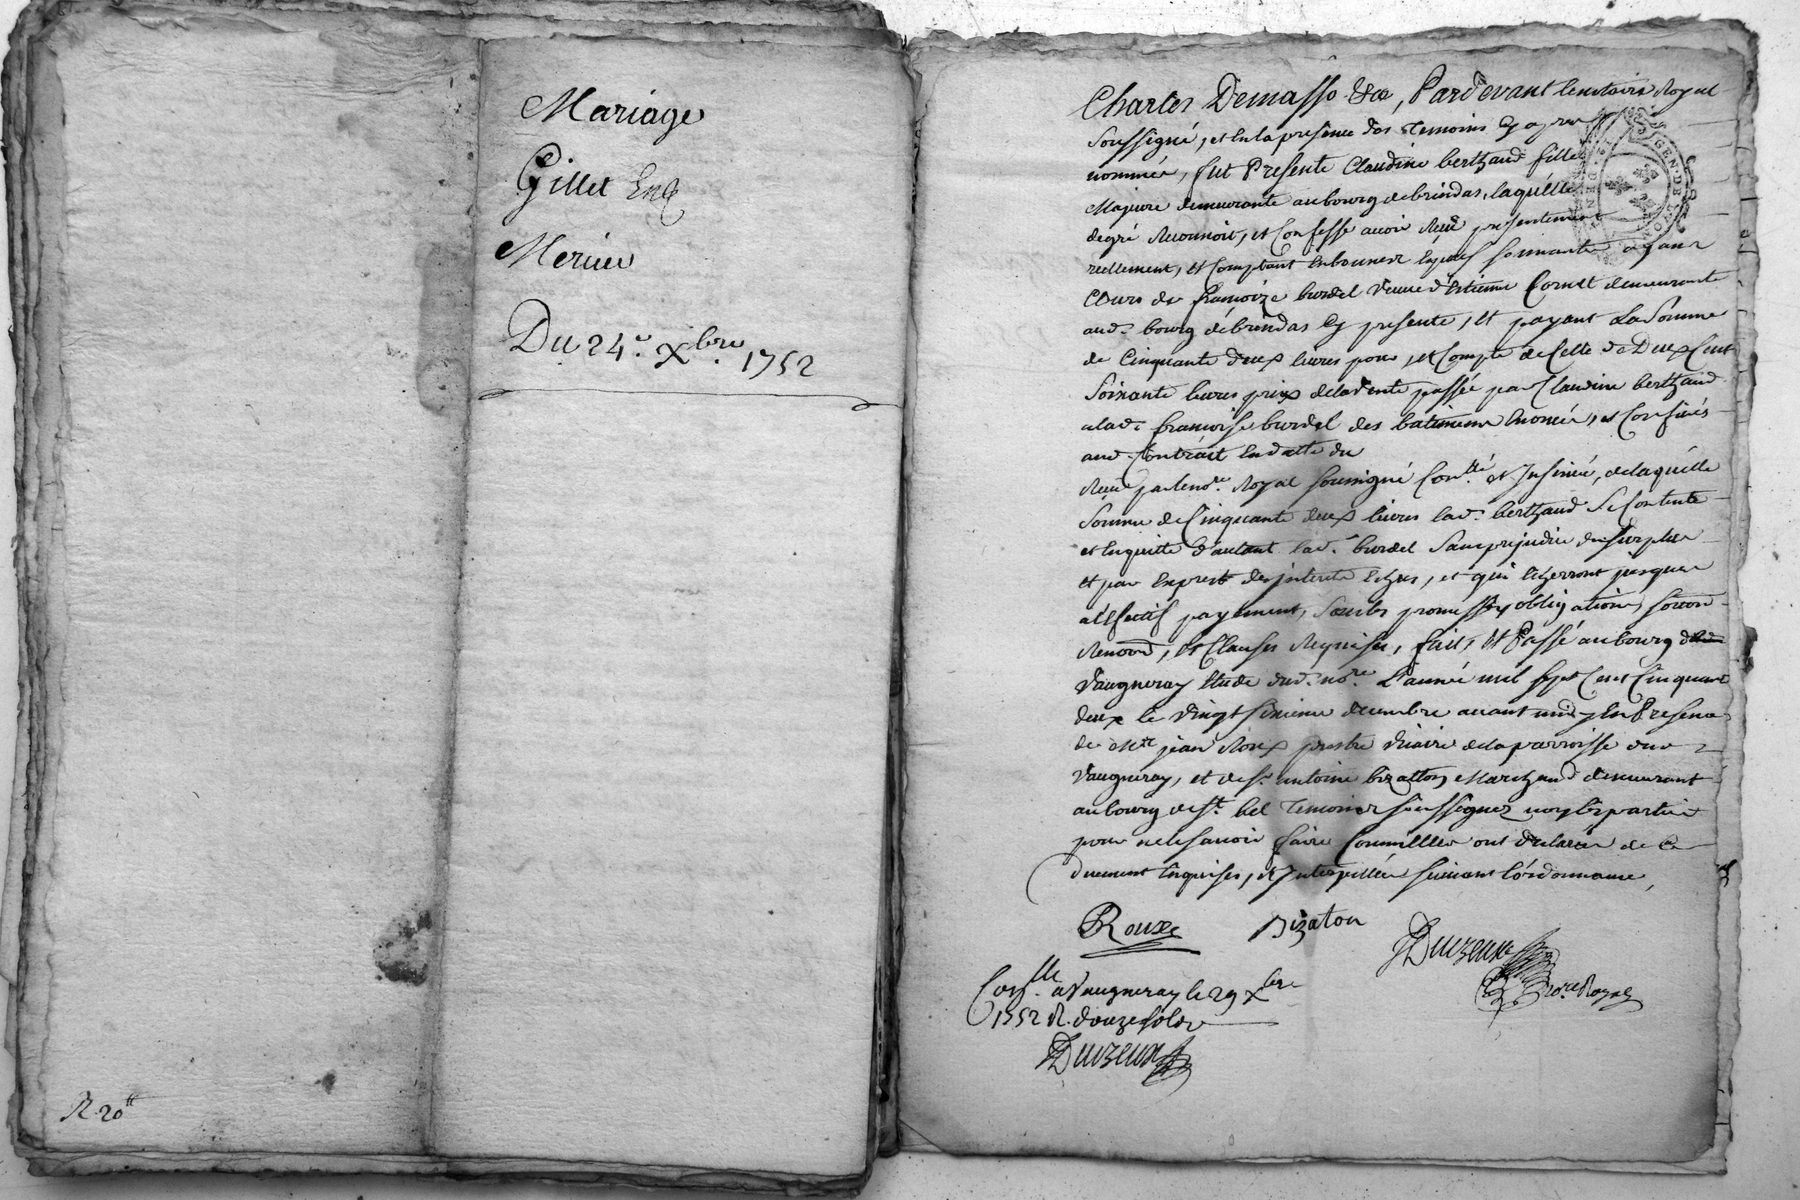 Mariage
Gillet
Merier
Du 24.e Xbre. 1752
R. 20tt
Charles Demasso &ca, Pardevant lenotaire Royal
Soussigné, et enla presence des Temoins cy apres
nommés, fut Presente Claudine berthaud fille
Majeure demeurante aubourg debrindas, laquelle
degré Reconnoit, et Confesse avoir Receu presentement
reellement, et Comptant enbonnes especes sonnantes ayant
Cours de françoize burdel veuve d'Estienne Cornet demeurante
aud. bourg debrindas cy presente, et payant La Somme
de Cinquante deux livres pour, et Compte de Celle de Deux Cent
Soixante livres prix delavente passée par Claudine berthaud
alad. françoise burdel des batimens enoncés, et Confinés
aud. Contract endatte du
Receu parlenore. Royal soussigné Conllé et Insinué, delaquelle
Somme de Cinquante deux livres lad. berthaud se Contente
et enquitte d'autant lad. burdel Sans prejudice du surplus
et par exprest des interets echus, et qui echerront jusques
aleffectif payement, Sous les promesses, obligations, soum.
Renond, et Clauses Requises, fait, et Passé aubourg
Vaugneray Etude dud. nore. L'année mil sept Cent Cinquante
deux le vingt sixieme decembre avant midy En Presence
de Mre jean Roux prestre vicaire delaparroisse dud.
Vaugneray, et de sr. antoine bizatton Marchand demeurant
aubourg de st. bel Temoins soussignez non les parties
pour nelesavoir faire Comme elles ont declaré de Ce
duement enquises, et Interpellées suivant l'ordonnance,
Roux
Bizaton
Duizeux
nore. Royal
Conlle. a Vaugneray le 29 Xbre
1752 R. douze sols
Duizeux
GEN. DE LYON